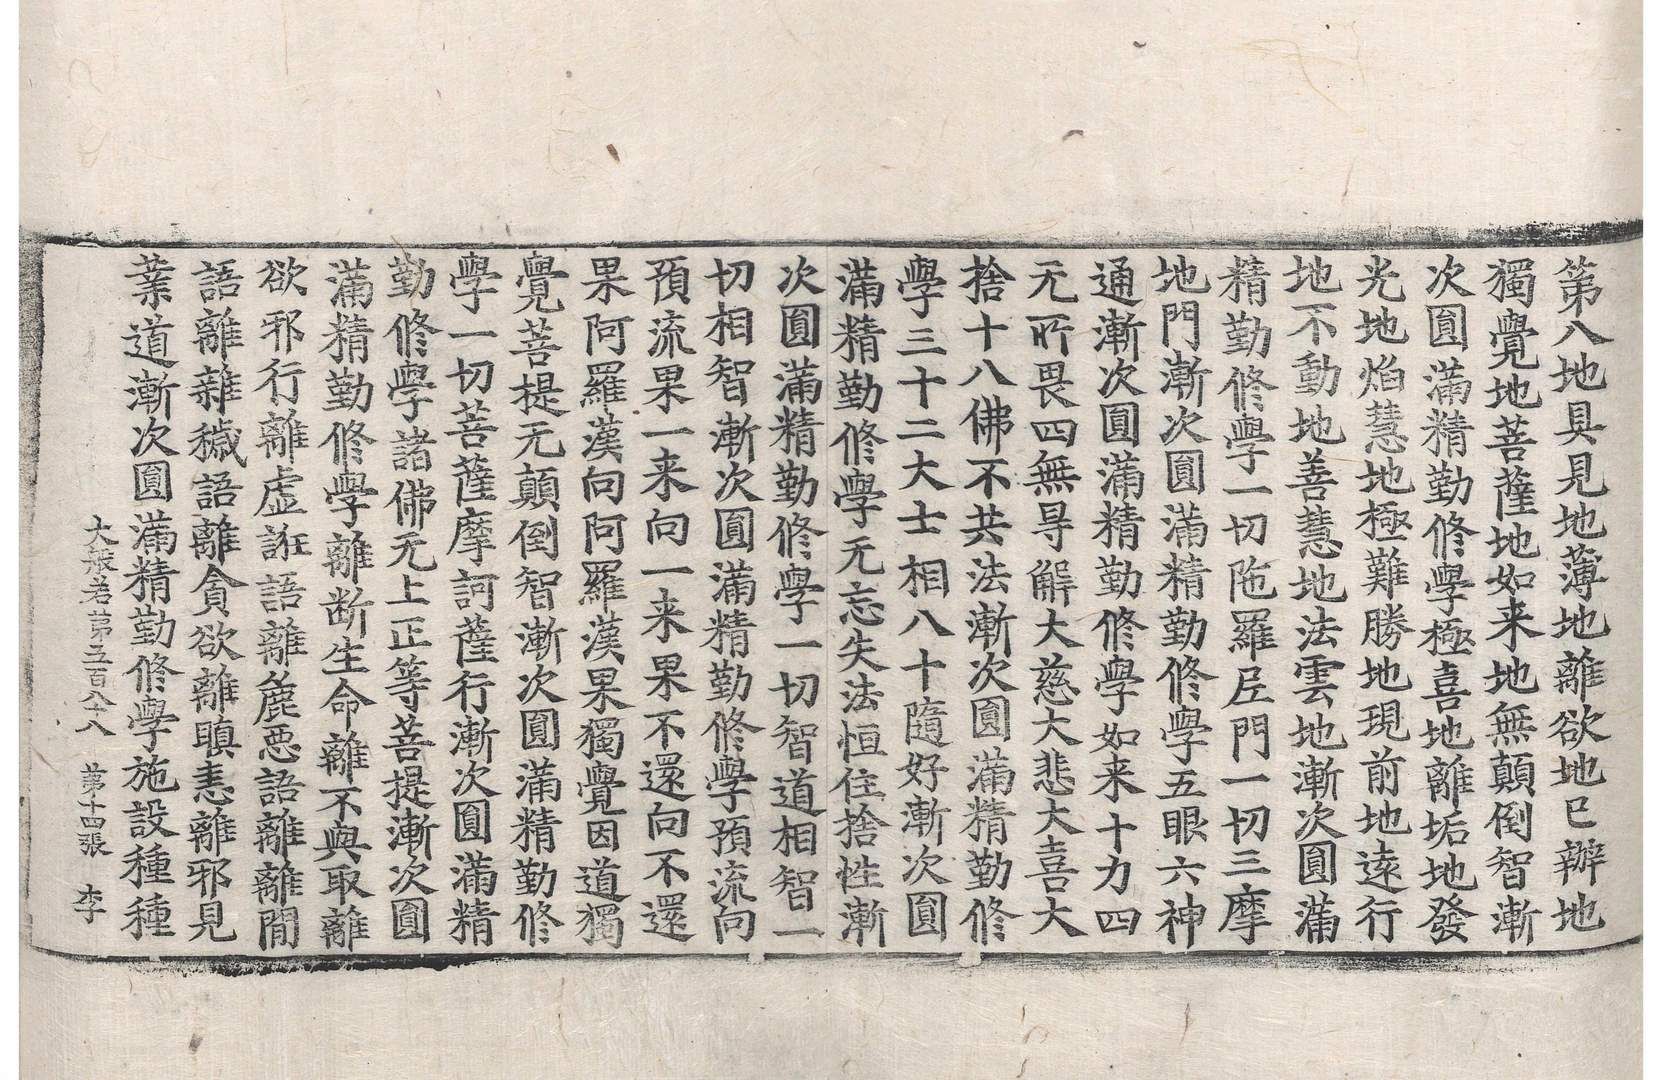 第八地具見地薄地離欲地已辦地
獨覺地菩薩地如来地無顛倒智漸
次圓滿精勤修學極喜地離垢地發
光地焰慧地極難勝地現前地遠行
地不動地善慧地法雲地漸次圓滿
精勤修學一切陁羅尼門一切三摩
地門漸次圓滿精勤修學五眼六神
通漸次圓滿精勤修學如来十力四
无所畏四無㝵解大慈大悲大喜大
捨十八佛不共法漸次圓滿精勤修
學三十二大士相八十隨好漸次圓
滿精勤修學无忘失法恒住捨性漸
次圓滿精勤修學一切智道相智一
切相智漸次圓滿精勤修學預流向
預流果一来向一来果不還向不還
果阿羅漢向阿羅漢果獨覺因道獨
覺菩提无顛倒智漸次圓滿精勤修
學一切菩薩摩訶薩行漸次圓滿精
勤修學諸佛无上正等菩提漸次圓
滿精勤修學離断生命離不與取離
欲邪行離虛誑語離麁惡語離離間
語離雜穢語離貪欲離瞋恚離邪見
業道漸次圓滿精勤修學施設種種
大般若第五百八十八 第十四張 李